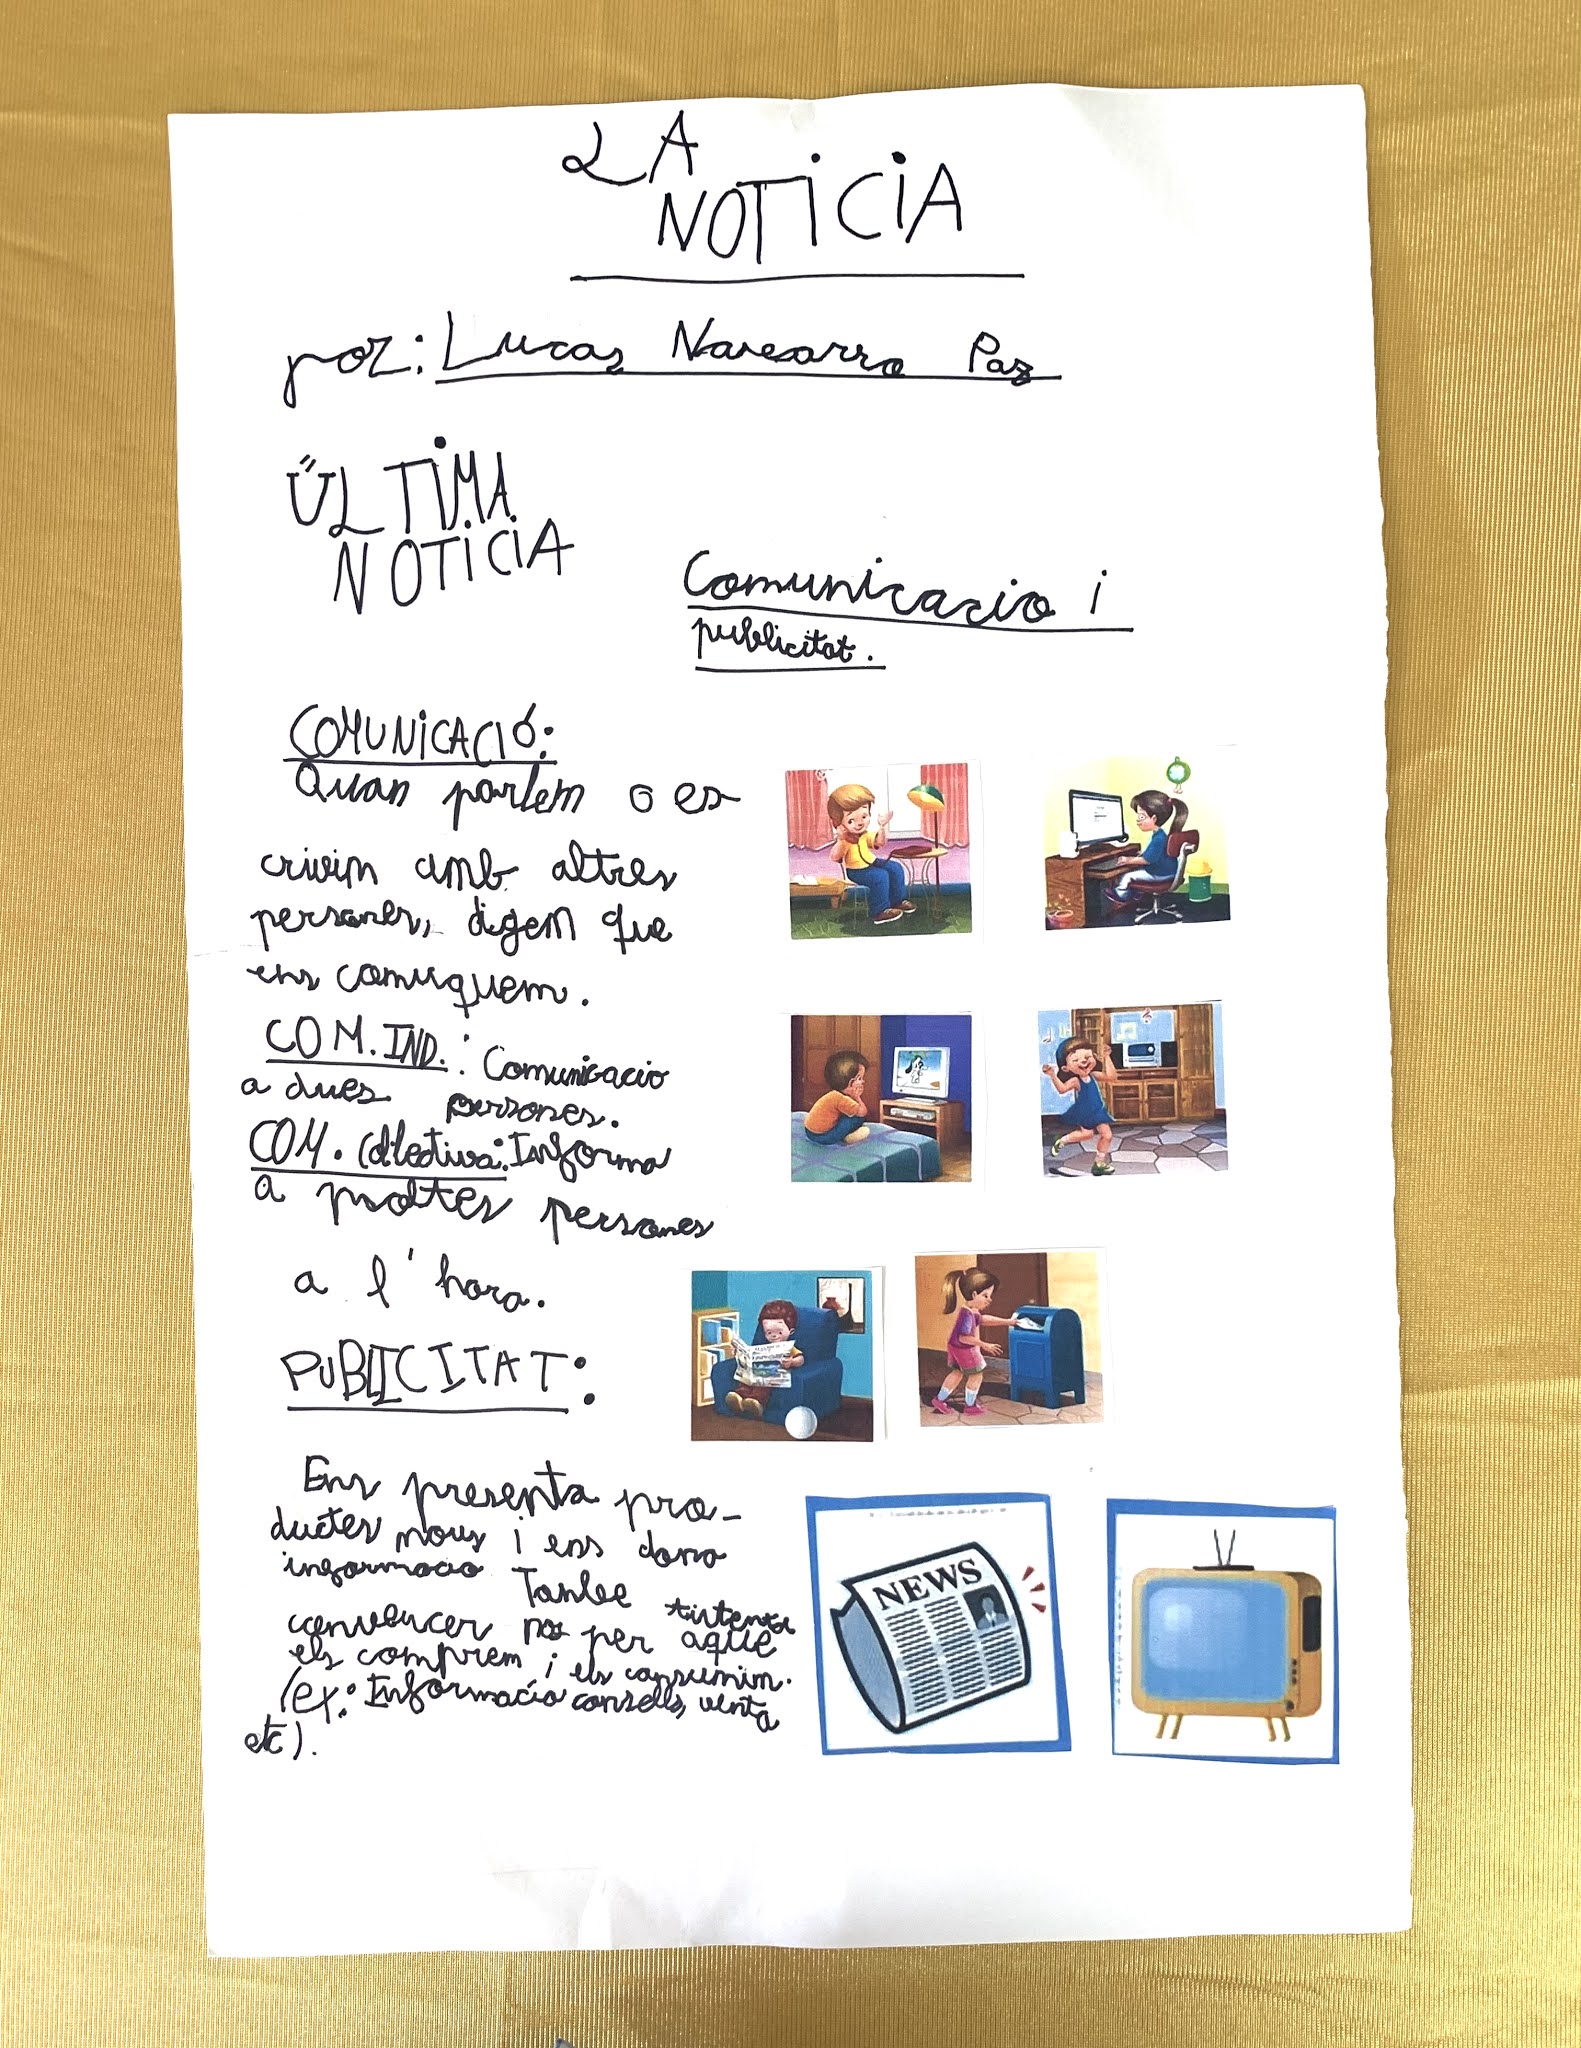 LA
NOTICIA
por: Lucas Navarro Paz
ÚLTIMA
NOTICIA
Comunicacio i
publicitat.
COMUNICACIÓ:
Quan parlem o es
crivim amb altres
persones, digem que
ens comuquem.
COM. IND.: Comunicacio
a dues persones.
COM. Col·lectiva: Informa
a moltes persones
a l'hora.
PUBLICITAT:
Ens presenta pro-
ductes nous i ens dona
informacio Tanbe
convencer nos per aque
els comprem i els consumim.
(ex: Informacio consells, venta
etc).
NEWS